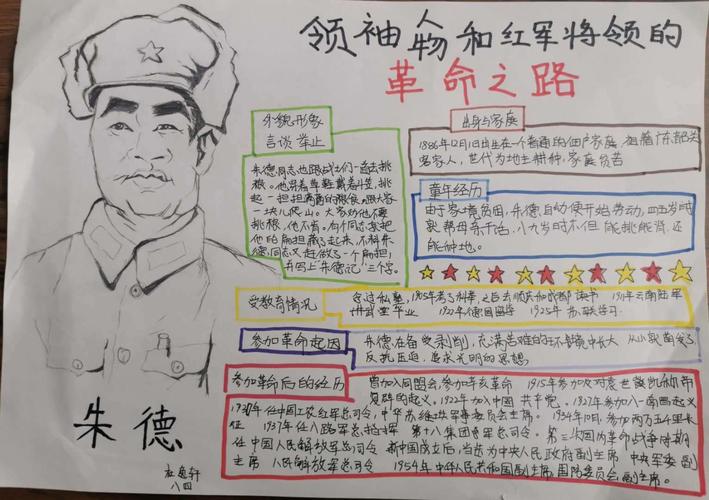 领袖人物和红军将领的
革命之路
外貌形象
言谈举止
朱德同志也跟战士们一道去挑
粮。他穿着草鞋戴着斗笠,挑
起一担担满满的粮食,跟大家
一块儿爬山。大家劝他不要
挑粮,他不肯。有个同志就把
他的扁担藏起来,不料朱
德同志又赶做了一个扁担,
并写上朱德记三个字。
出身与家庭
1886年12月1日出生在一个普通的佃户家庭 祖籍广东韶关
客家人,世代为地主耕种,家庭贫苦
童年经历
由于家境贫困,朱德自幼便开始劳动,四五岁时
就帮母亲干活,八九岁时不但能挑能背,还
能种地。
受教育情况
念过私塾,1905年考了科举,之后去顺庆和成都读书 1911年云南陆军
讲武堂毕业 1922年德国留学 1925年苏联学习.
参加革命起因
朱德在备受剥削,充满苦难的环境中长大 从小就萌发了
反抗压迫、追求光明的思想
参加革命后的经历
曾加入同盟会,参加辛亥革命 1915年参加反对袁世凯称帝
复辟的起义。1922年加入中国共产党。1927年参加八一南昌起义
1930年任中国工农红军总司令,中华苏维埃军事委员会主席。1934年10月,参加两万五千里长
征 1937年任八路军总指挥 第十八集团军总司令。第三次国内革命战争时期
任中国人民解放军总司令 新中国成立后,当选为中央人民政府副主席 中央军委副
主席 人民解放军总司令 1954年中华人民共和国副主席,国防委员会副主席.
朱德
八四